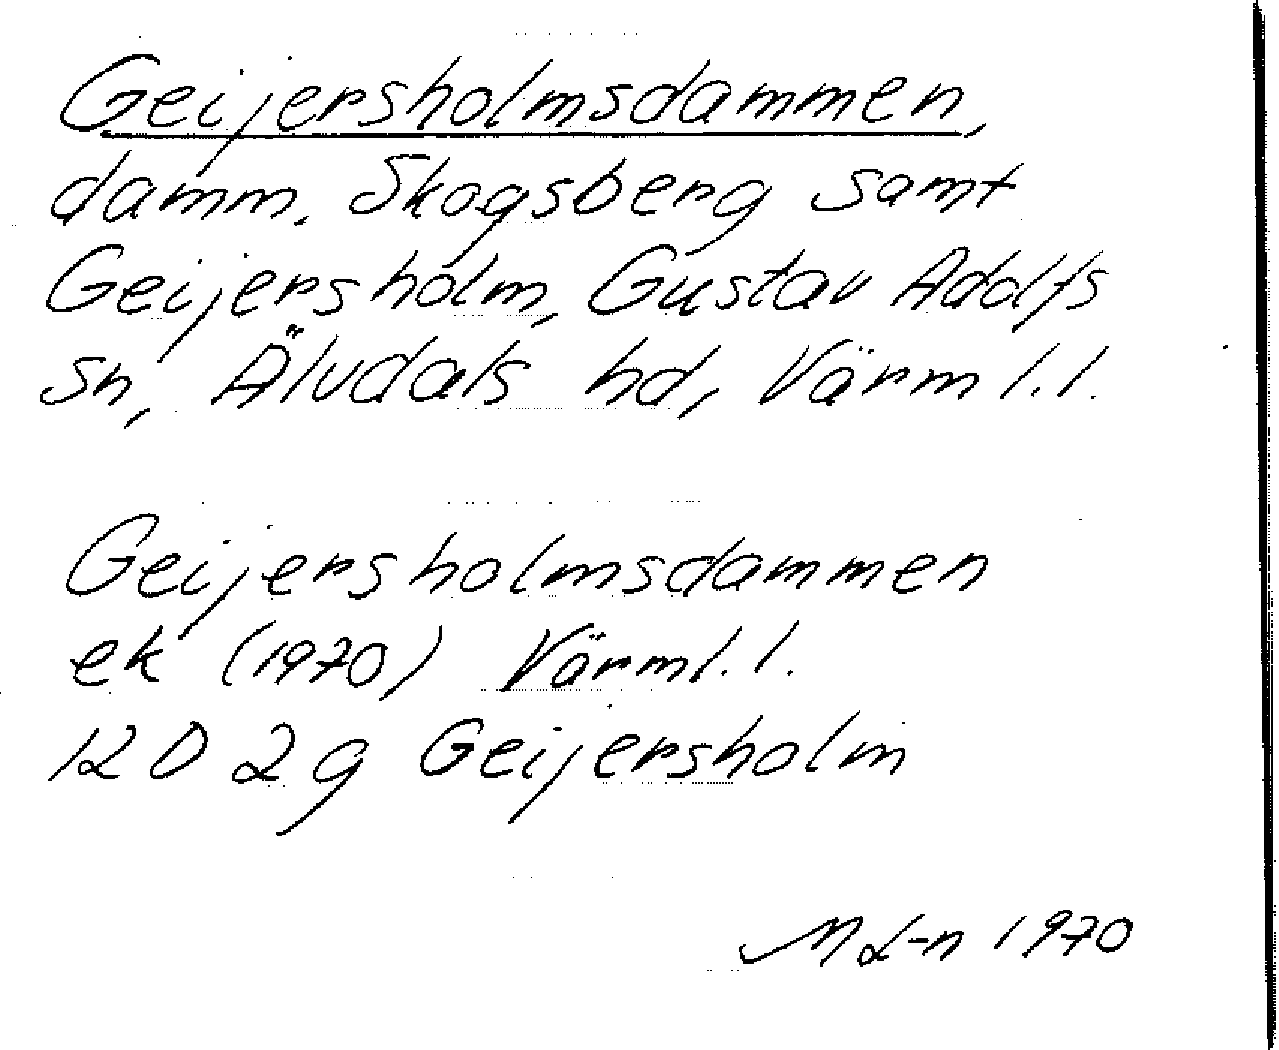 Geijersholmsdammen,
damm. Skogsberg samt
Geijersholm, Gustav Adolfs
sn, Älvdals hd, Värml.l.
Geijersholmsdammen
ek (1970) Värml.l.
12 D 2 g Geijersholm
M L-n 1970